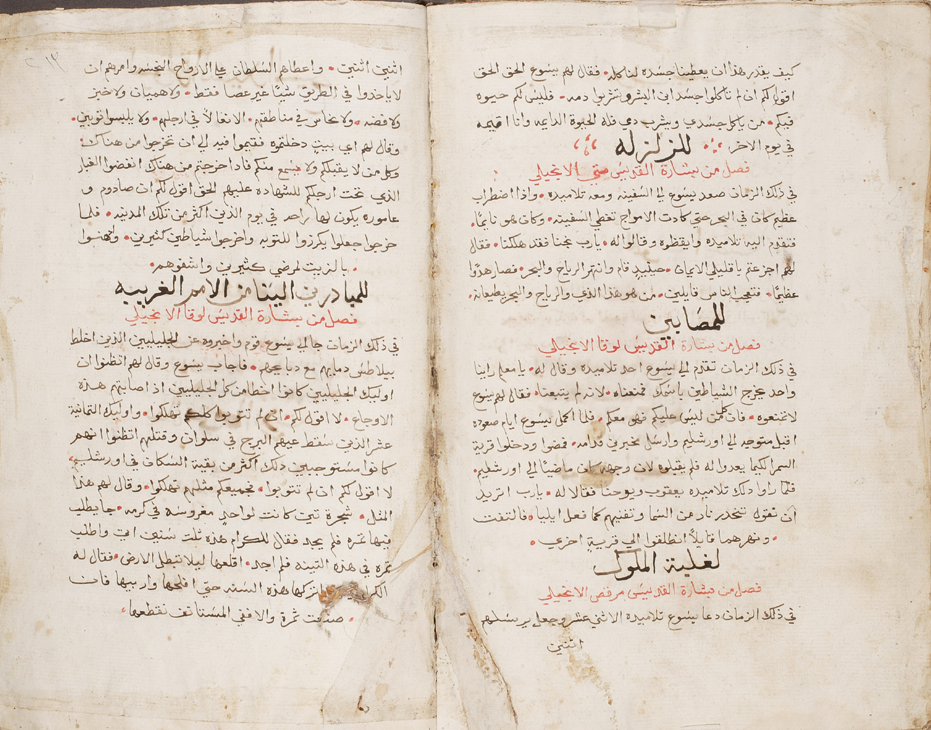 كيف يقدر هذا ان يعطينا جسده لناكله • فقال لهم يسوع الحق الحق
اقول لكم ان لم تاكلوا جسد ابن البشر وتشربوا دمه • فليس لكم حيوه
فيكم • من ياكل جسدي ويشرب دمي فله الحيوة الدايمه وانا اقيمه
في يوم الاخر • للزلزله
فصل من بشارة القديس متى الانجيلي
في ذلك الزمان صعد يسوع الى السفينه ومعه تلاميذه • واذا اضطراب
عظيم كان في البحر حتى كادت الامواج تغطي السفينه • وكان هو نايمًا •
فتقدم اليه تلاميذه وايقظوه وقالوا له • يارب نجنا فقد هلكنا • فقال
لهم اجزعتم يا قليلي الايمان • حينيذ قام وانتهر الرياح والبحر • فصار هدوًا
عظيمًا • فتعجب الناس قايلين • من هو هذا الذي والرياح والبحر يطيعانه •
للمصابين
فصل من بشارة القديس لوقا الانجيلي
في ذلك الزمان تقدم الى يسوع احد تلاميذه وقال له • يا معلم راينا
واحد يخرج الشياطين باسمك فمنعناه • لانه لم يتبعنا • فقال لهم يسوع
لا تمنعوه • فان كلمن ليس عليكم فهو معكم • فلما اكمل يسوع ايام صعوده
اقبل متوجه الى اورشليم وارسل مخبرين قدامه • فمضوا ودخلوا قرية
السمرا لكيما يعدوا له فلم يقبلوه لان وجهه كان ماضيًا الى اورشليم •
فلما راوا ذلك تلاميذه يعقوب ويوحنا فقالا له • يارب اتريد
ان نقول تنحدر نار من السما وتفنيهم كما فعل ايليا • فالتفت
• ونهرهما قايلاً انطلقوا الى قرية اخرى •
لغلبة الملوك
فصل من بشارة القديس مرقص الانجيلي
في ذلك الزمان دعا يسوع تلاميذه الاثني عشر وجعل يرسلهم
اثنين
اثنين اثنين • واعطاهم السلطان على الارواح النجسه وامرهم ان
لا ياخذوا في الطريق شيًا غير عصا فقط • ولا هميان ولا خبز
ولا فضه • ولا نحاس في مناطقهم • الا نعالاً في ارجلهم • ولا يلبسوا ثوبين •
وقال لهم اي بيت دخلتموه فقيموا فيه الى ان تخرجوا من هناك •
وكل من لا يقبلكم ولا يسمع منكم فاذا خرجتم من هناك انفضوا الغبار
الذي تحت ارجلكم للشهاده عليهم الحق اقول لكم ان صادوم و
عاموره يكون لها راحه في يوم الدين اكثر من تلك المدينه • فلما
خرجوا جعلوا يكرزوا للتوبه واخرجوا شياطين كثيرين • ودهنوا
• بالزيت لمرضى كثيرين واشفوهم •
للمبادرين الينا من الامم الغريبه
فصل من بشارة القديس لوقا الانجيلي
في ذلك الزمان جا الى يسوع قوم واخبروه عن الجليليين الذين اخلط
بيلاطس دماهم مع دبايحهم • فاجاب يسوع وقال لهم اتظنوا ان
اوليك الجليليين كانوا اخطا من كل الجليليين اذ اصابتهم هذه
الاوجاع • لا اقول لكم • ان لم تتوبوا كلكم تهلكوا • واوليك الثمانية
عشر الذين سقط عليهم البرج في سلوان وقتلهم اتظنوا انهم
كانوا مستوجبين ذلك اكثر من بقية السكان في اورشليم •
لا اقول لكم ان لم تتوبوا • فجميعكم مثلهم تهلكوا • وقال لهم هذا
المثل • شجرة تين كانت لواحد مغروسه في كرمه • جا يطلب
فيها ثمره فلم يجد فقال للكرام هذه ثلث سنين اتي واطلب
ثمره في هذه التينه فلم اجد • اقلعها ليلا تبطل الارض • فقال له
اتركها هذه السنه حتى افلحها واربيها فان
• صنعت ثمرة والا ففي المستانف نقطعها •